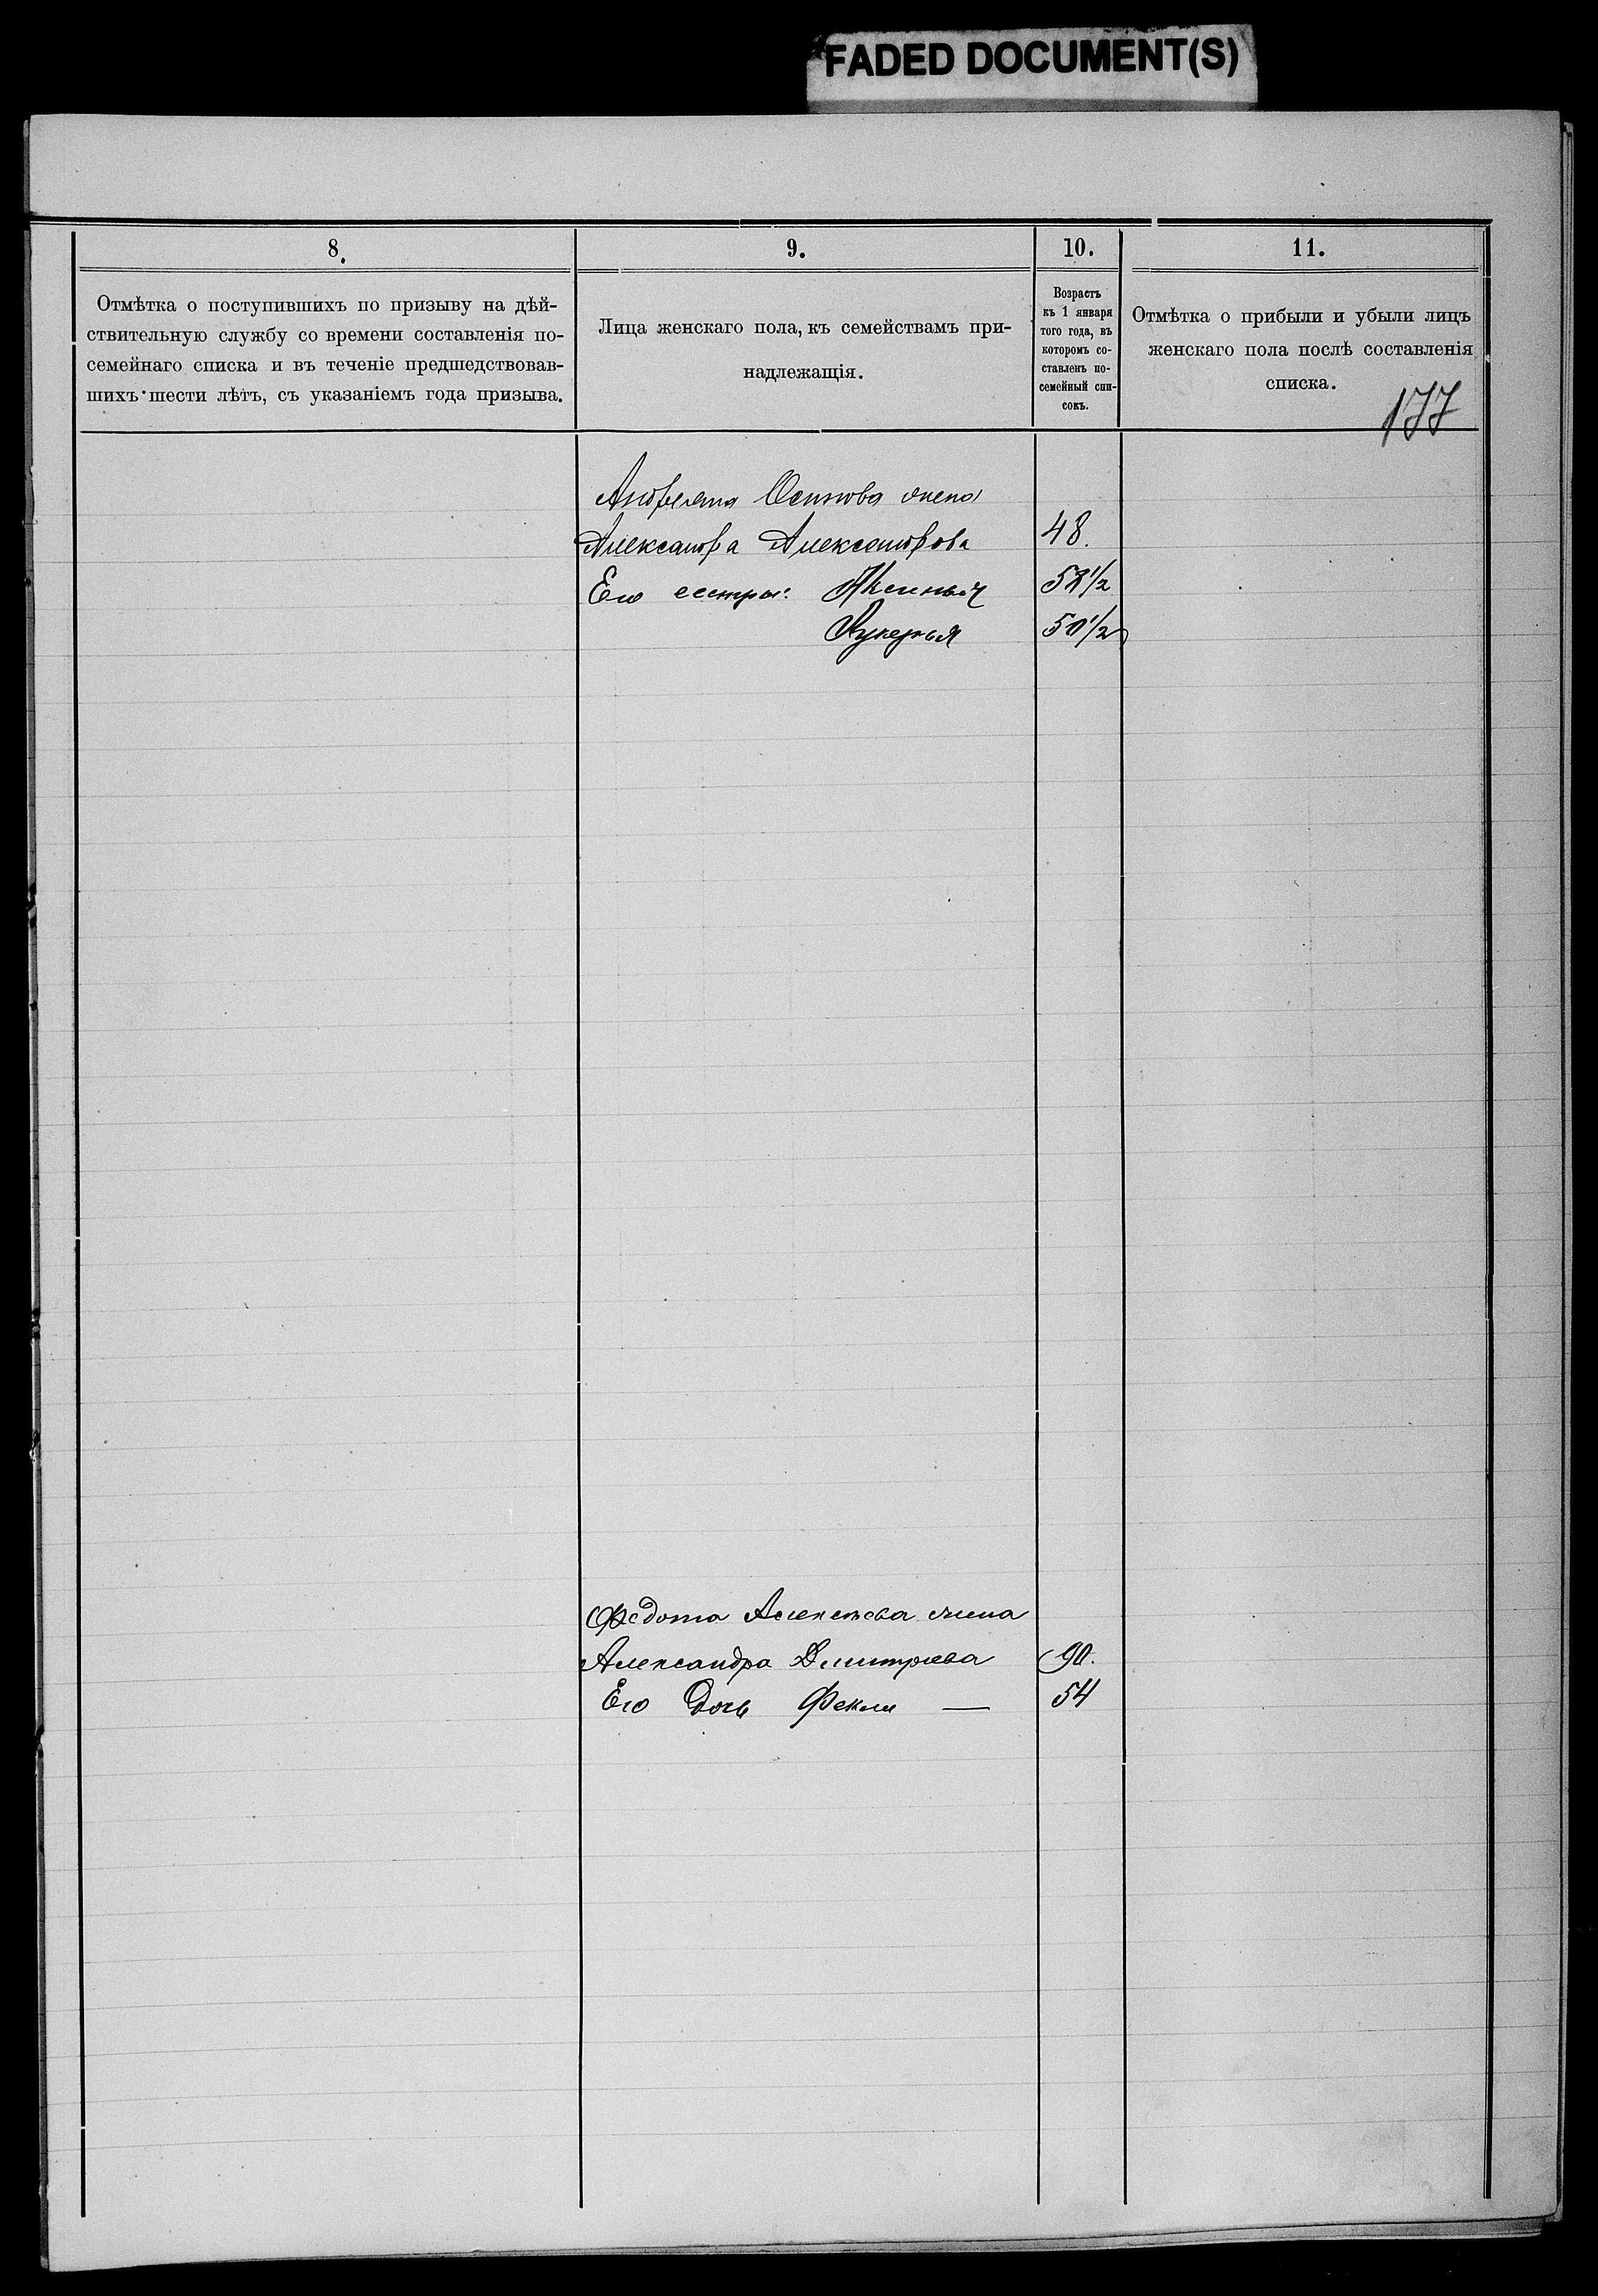 FADED DOCUMENT(S)
8.
9.
10.
11.
Отмѣтка о поступившихъ по призыву на дѣй-
ствительную службу со времени составленія по-
семейнаго списка и въ теченіе предшедствовав-
шихъ шести лѣтъ, съ указаніемъ года призыва.
Лица женскаго пола, къ семействамъ при-
надлежащія.
Возрастъ
къ 1 января
того года, въ
которомъ со-
ставленъ по-
семейный спи-
сокъ.
Отмѣтка о прибыли и убыли лицъ
женскаго пола послѣ составленія
списка.
177
Осипова жена
Александра Александрова 48.
Его сестры: 58½
Лукерья 50½
Федота Алексѣева жена
Александра Дмитріева 90.
Его дочь Фекла — 54